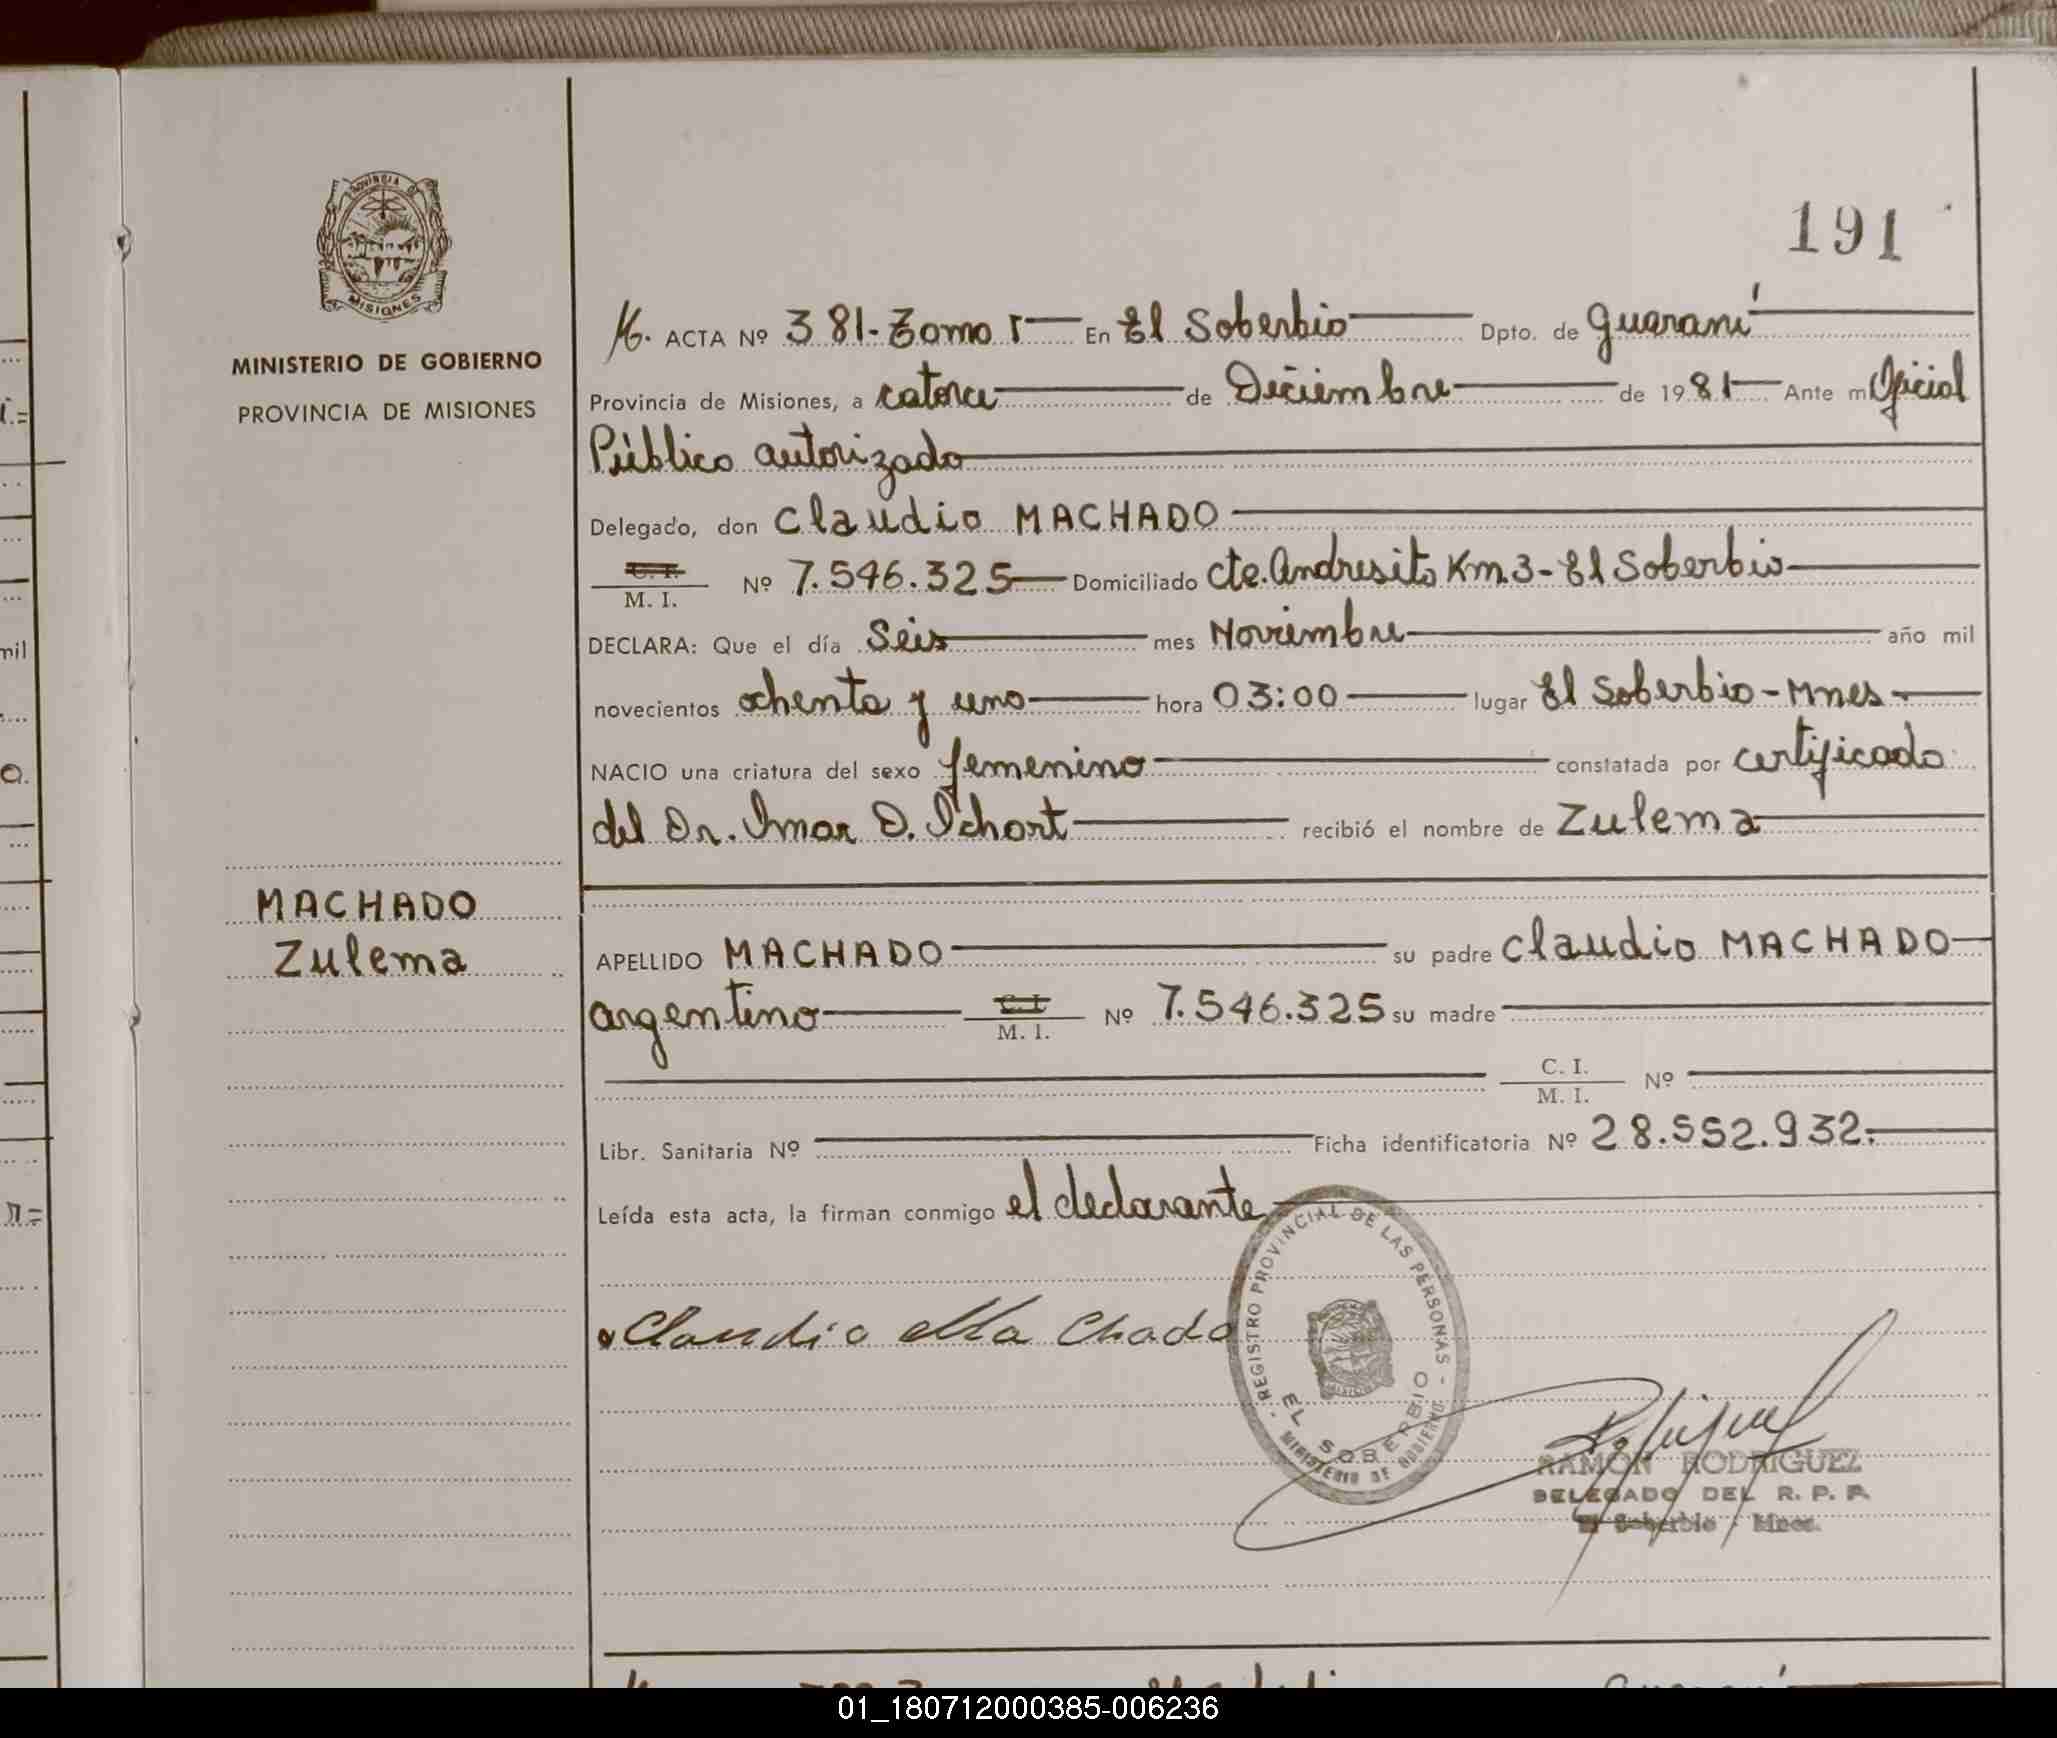 191
PROVINCIA DE
MISIONES
MINISTERIO DE GOBIERNO
PROVINCIA DE MISIONES
MACHADO
Zulema
M. ACTA Nº 381-Tomo I En El Soberbio Dpto. de Guaraní
Provincia de Misiones, a catorce de Diciembre de 1981 Ante mí Oficial
Público autorizado
Delegado, don Claudio MACHADO
C. I.
M. I. Nº 7.546.325 Domiciliado Cte. Andresito Km.3-El Soberbio
DECLARA: Que el día Seis mes Noviembre año mil
novecientos ochenta y uno hora 03:00 lugar El Soberbio-Mnes-
NACIO una criatura del sexo femenino constatada por certificado
del Dr. Omar D. recibió el nombre de Zulema
APELLIDO MACHADO su padre Claudio MACHADO
argentino C. I.
M. I. Nº 7.546.325 su madre
C. I.
M. I. Nº
Libr. Sanitaria Nº Ficha identificatoria Nº 28.552.932.
Leída esta acta, la firman conmigo el declarante
Claudio Ma Chado
- REGISTRO PROVINCIAL DE LAS PERSONAS -
EL SOBERBIO
MINISTERIO DE GOBIERNO
RAMON RODRIGUEZ
DELEGADO DEL R. P. P.
El Soberbio - Mnes.
01_180712000385-006236